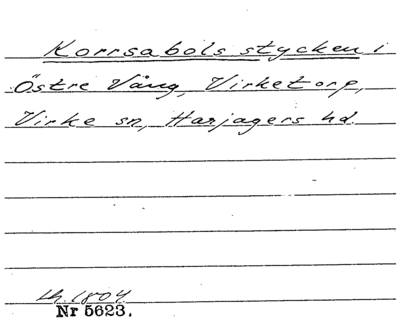 Korrsabols stycken i
Östre Vång, Virketorp,
Virke sn, Harjagers hd.
Lh. 1804
Nr 5623.